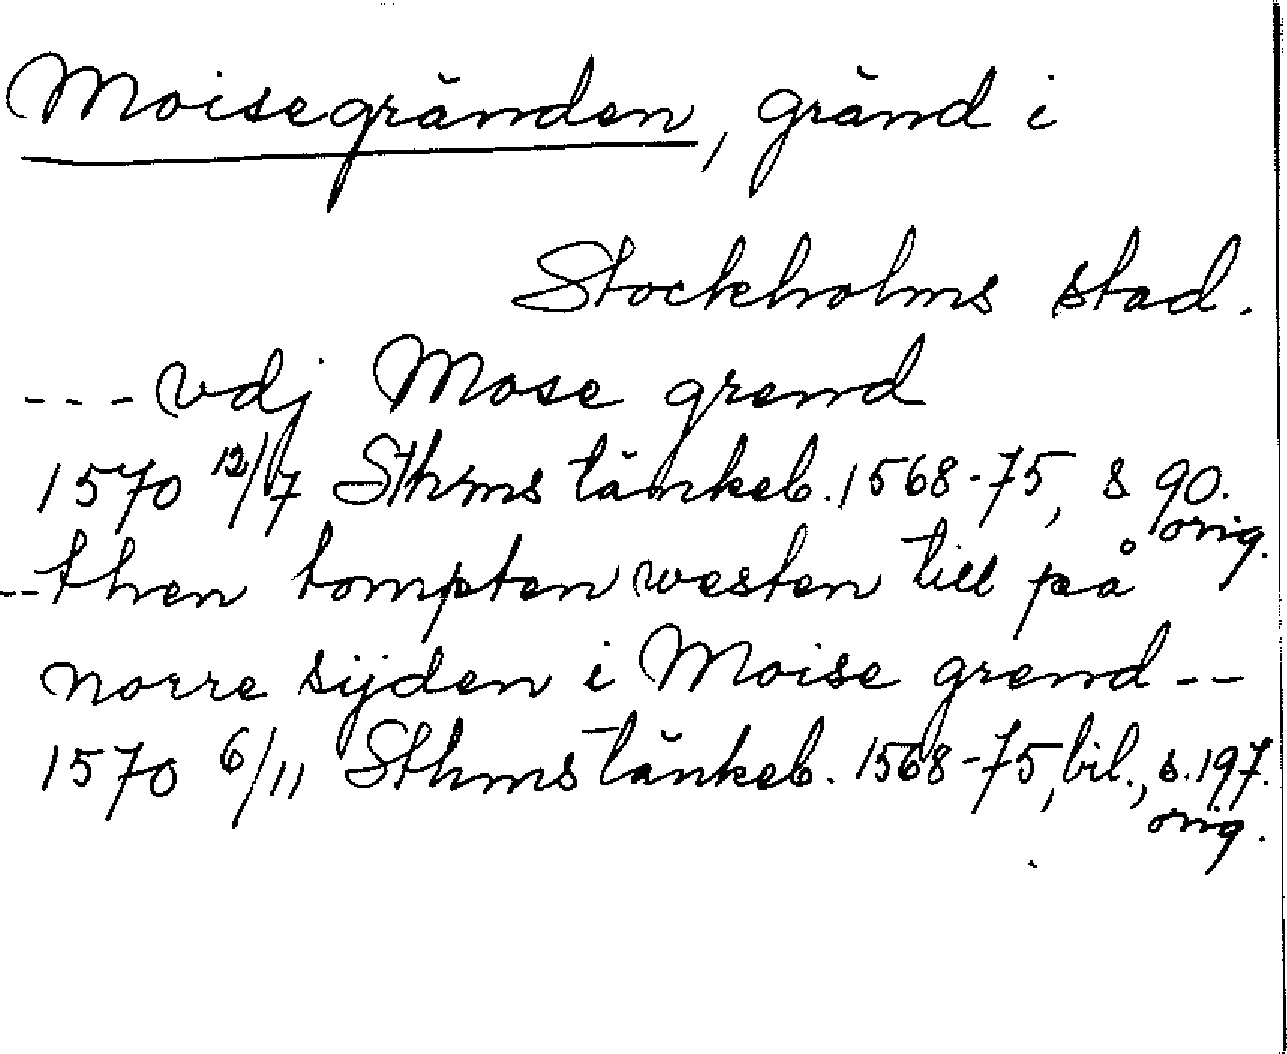 Moisegränden, gränd i
Stockholms stad.
--- vdj Mose grend
1570 12/7 Sthms tänkeb. 1568-75, s 90.
orig.
-- then tompten westen till på
norre sijden i Moise grend --
1570 6/11 Sthms tänkeb. 1568-75, bil., s. 197.
orig.